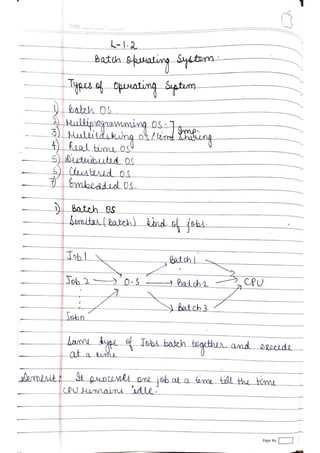 L-1.2
Batch Operating System
Types of Operating System
1) Batch OS
2) Multiprogramming OS :- Imp.
3) Multitasking OS / Time Sharing
4) Real time OS
5) Distributed OS
6) Clustered OS
7) Embedded OS.
1) Batch OS
Similar (Batch) kind of jobs.
Job 1 Batch 1
Job 2 O.S Batch 2 CPU
Jobn Batch 3
Same type of Jobs batch together and execute
at a time
demerit: It processes one job at a time till the time
CPU remains idle.
Page No.